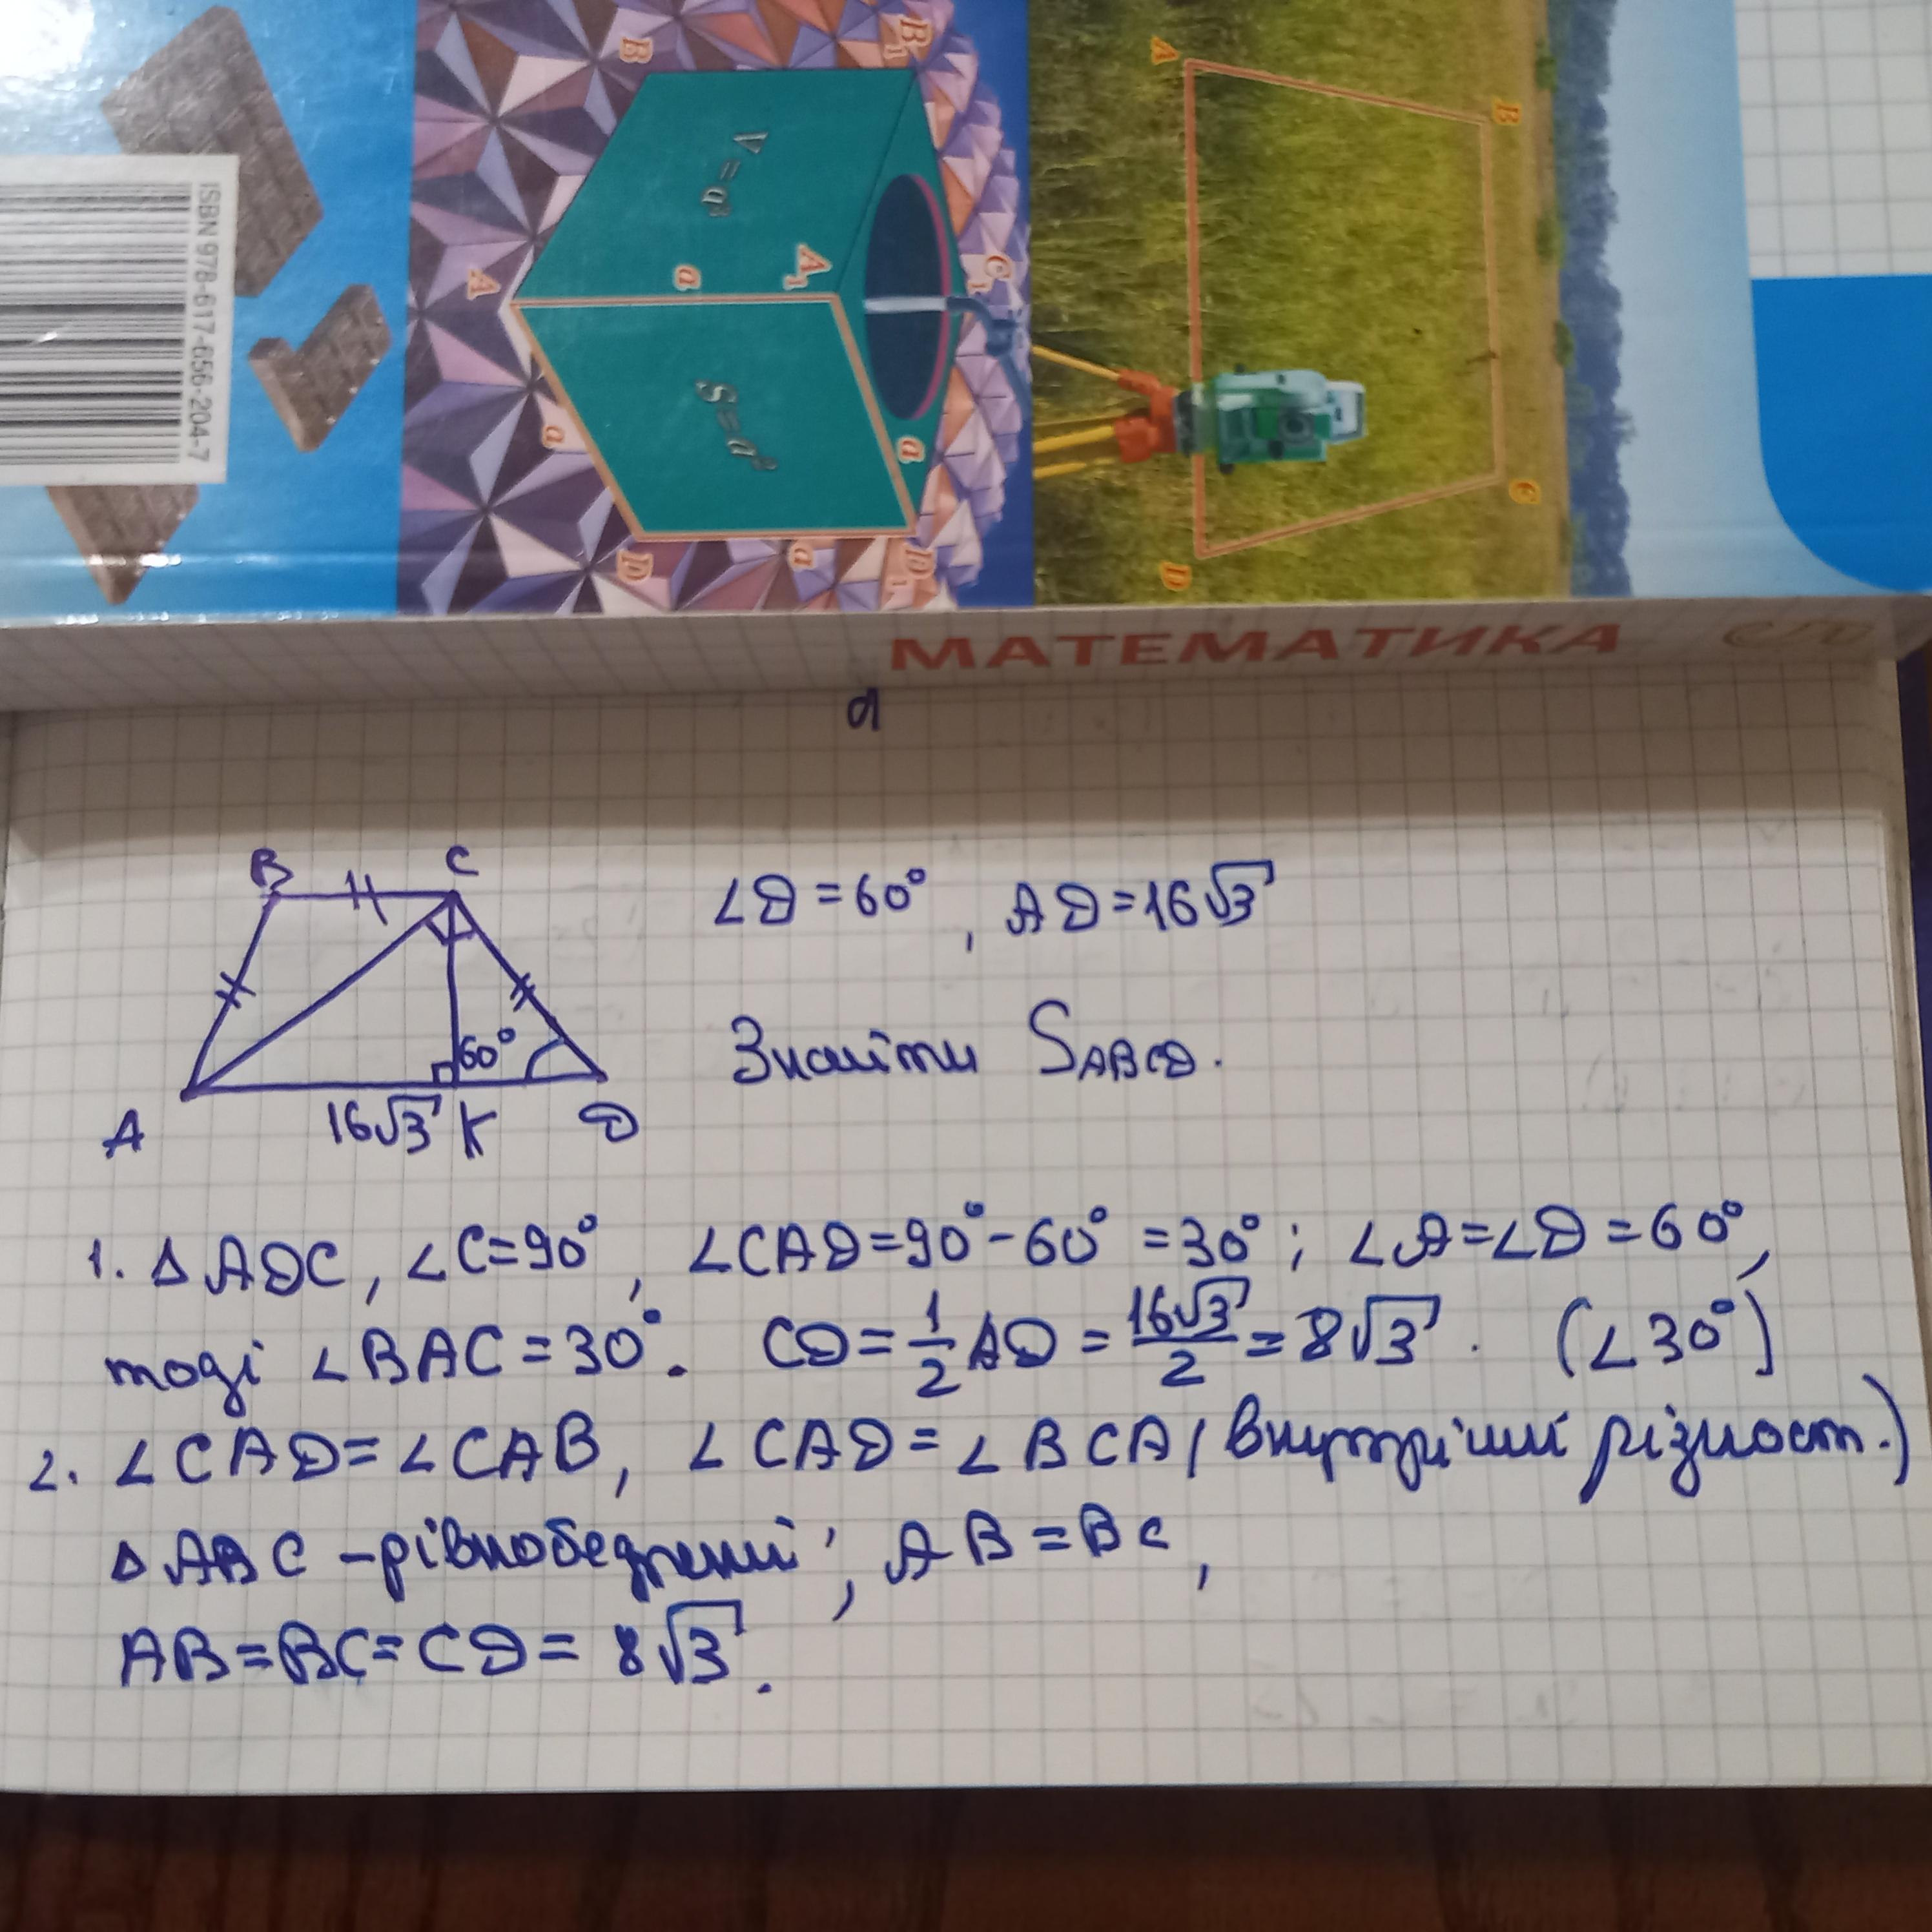 ISBN 978-617-656-204-7
B
B₁
V = a³
A₁
C₁
a
A
S = a²
a
a
D
a
D₁
A
B
C
D
МАТЕМАТИКА
B C
∠D = 60°, AD = 16√3
60°
Знайти S_ABCD.
A 16√3 K D
1. △ ADC, ∠C = 90°, ∠CAD = 90° - 60° = 30°; ∠A = ∠D = 60°,
тоді ∠BAC = 30°. CD = 1/2 AD = 16√3/2 = 8√3. (∠30°)
2. ∠CAD = ∠CAB, ∠CAD = ∠BCA (внутрішні різност.)
△ ABC - рівнобедрений, AB = BC,
AB = BC = CD = 8√3.